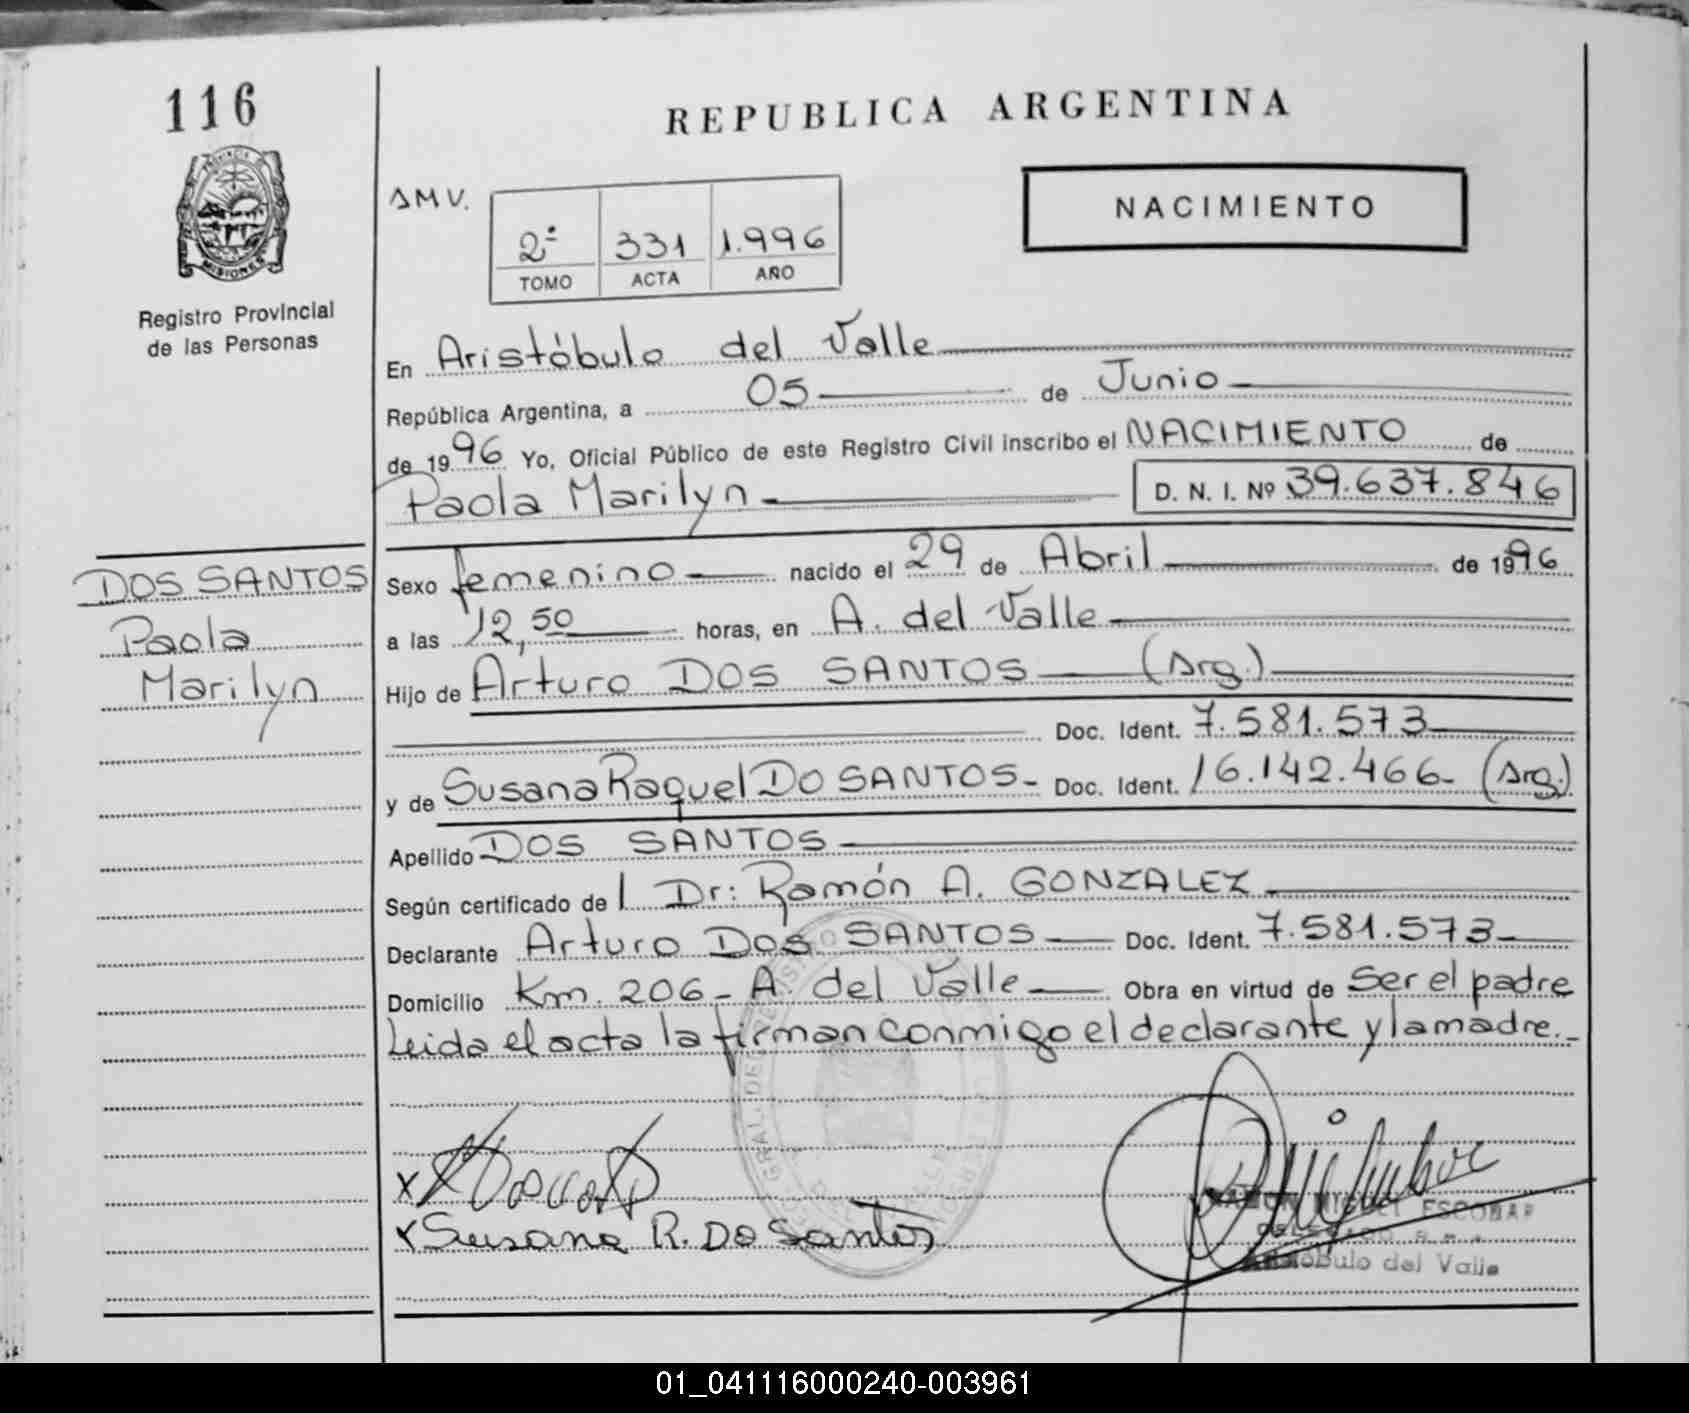 116
REPUBLICA ARGENTINA
PROVINCIA DE
MISIONES
Registro Provincial
de las Personas
AMV.
2º 331 1.996
TOMO ACTA AÑO
NACIMIENTO
En Aristóbulo del Valle
República Argentina, a 05 de Junio
de 1996 Yo, Oficial Público de este Registro Civil inscribo el NACIMIENTO de
Paola Marilyn D. N. I. Nº 39.637.846
DOS SANTOS
Paola
Marilyn
Sexo femenino nacido el 29 de Abril de 1996
a las 12,50 horas, en A. del Valle
Hijo de Arturo DOS SANTOS (Arg.)
Doc. Ident. 7.581.573
y de Susana Raquel DO SANTOS- Doc. Ident. 16.142.466- (Arg.)
Apellido DOS SANTOS
Según certificado de l Dr: Ramón A. GONZALEZ
Declarante Arturo DOS SANTOS Doc. Ident. 7.581.573
Domicilio Km. 206- A. del Valle Obra en virtud de Ser el padre
Leida el acta la firman conmigo el declarante y la madre.-
x
x Susana R. DO Santos
RAMON MIGUEL ESCOBAR
Aristóbulo del Valle
01_041116000240-003961